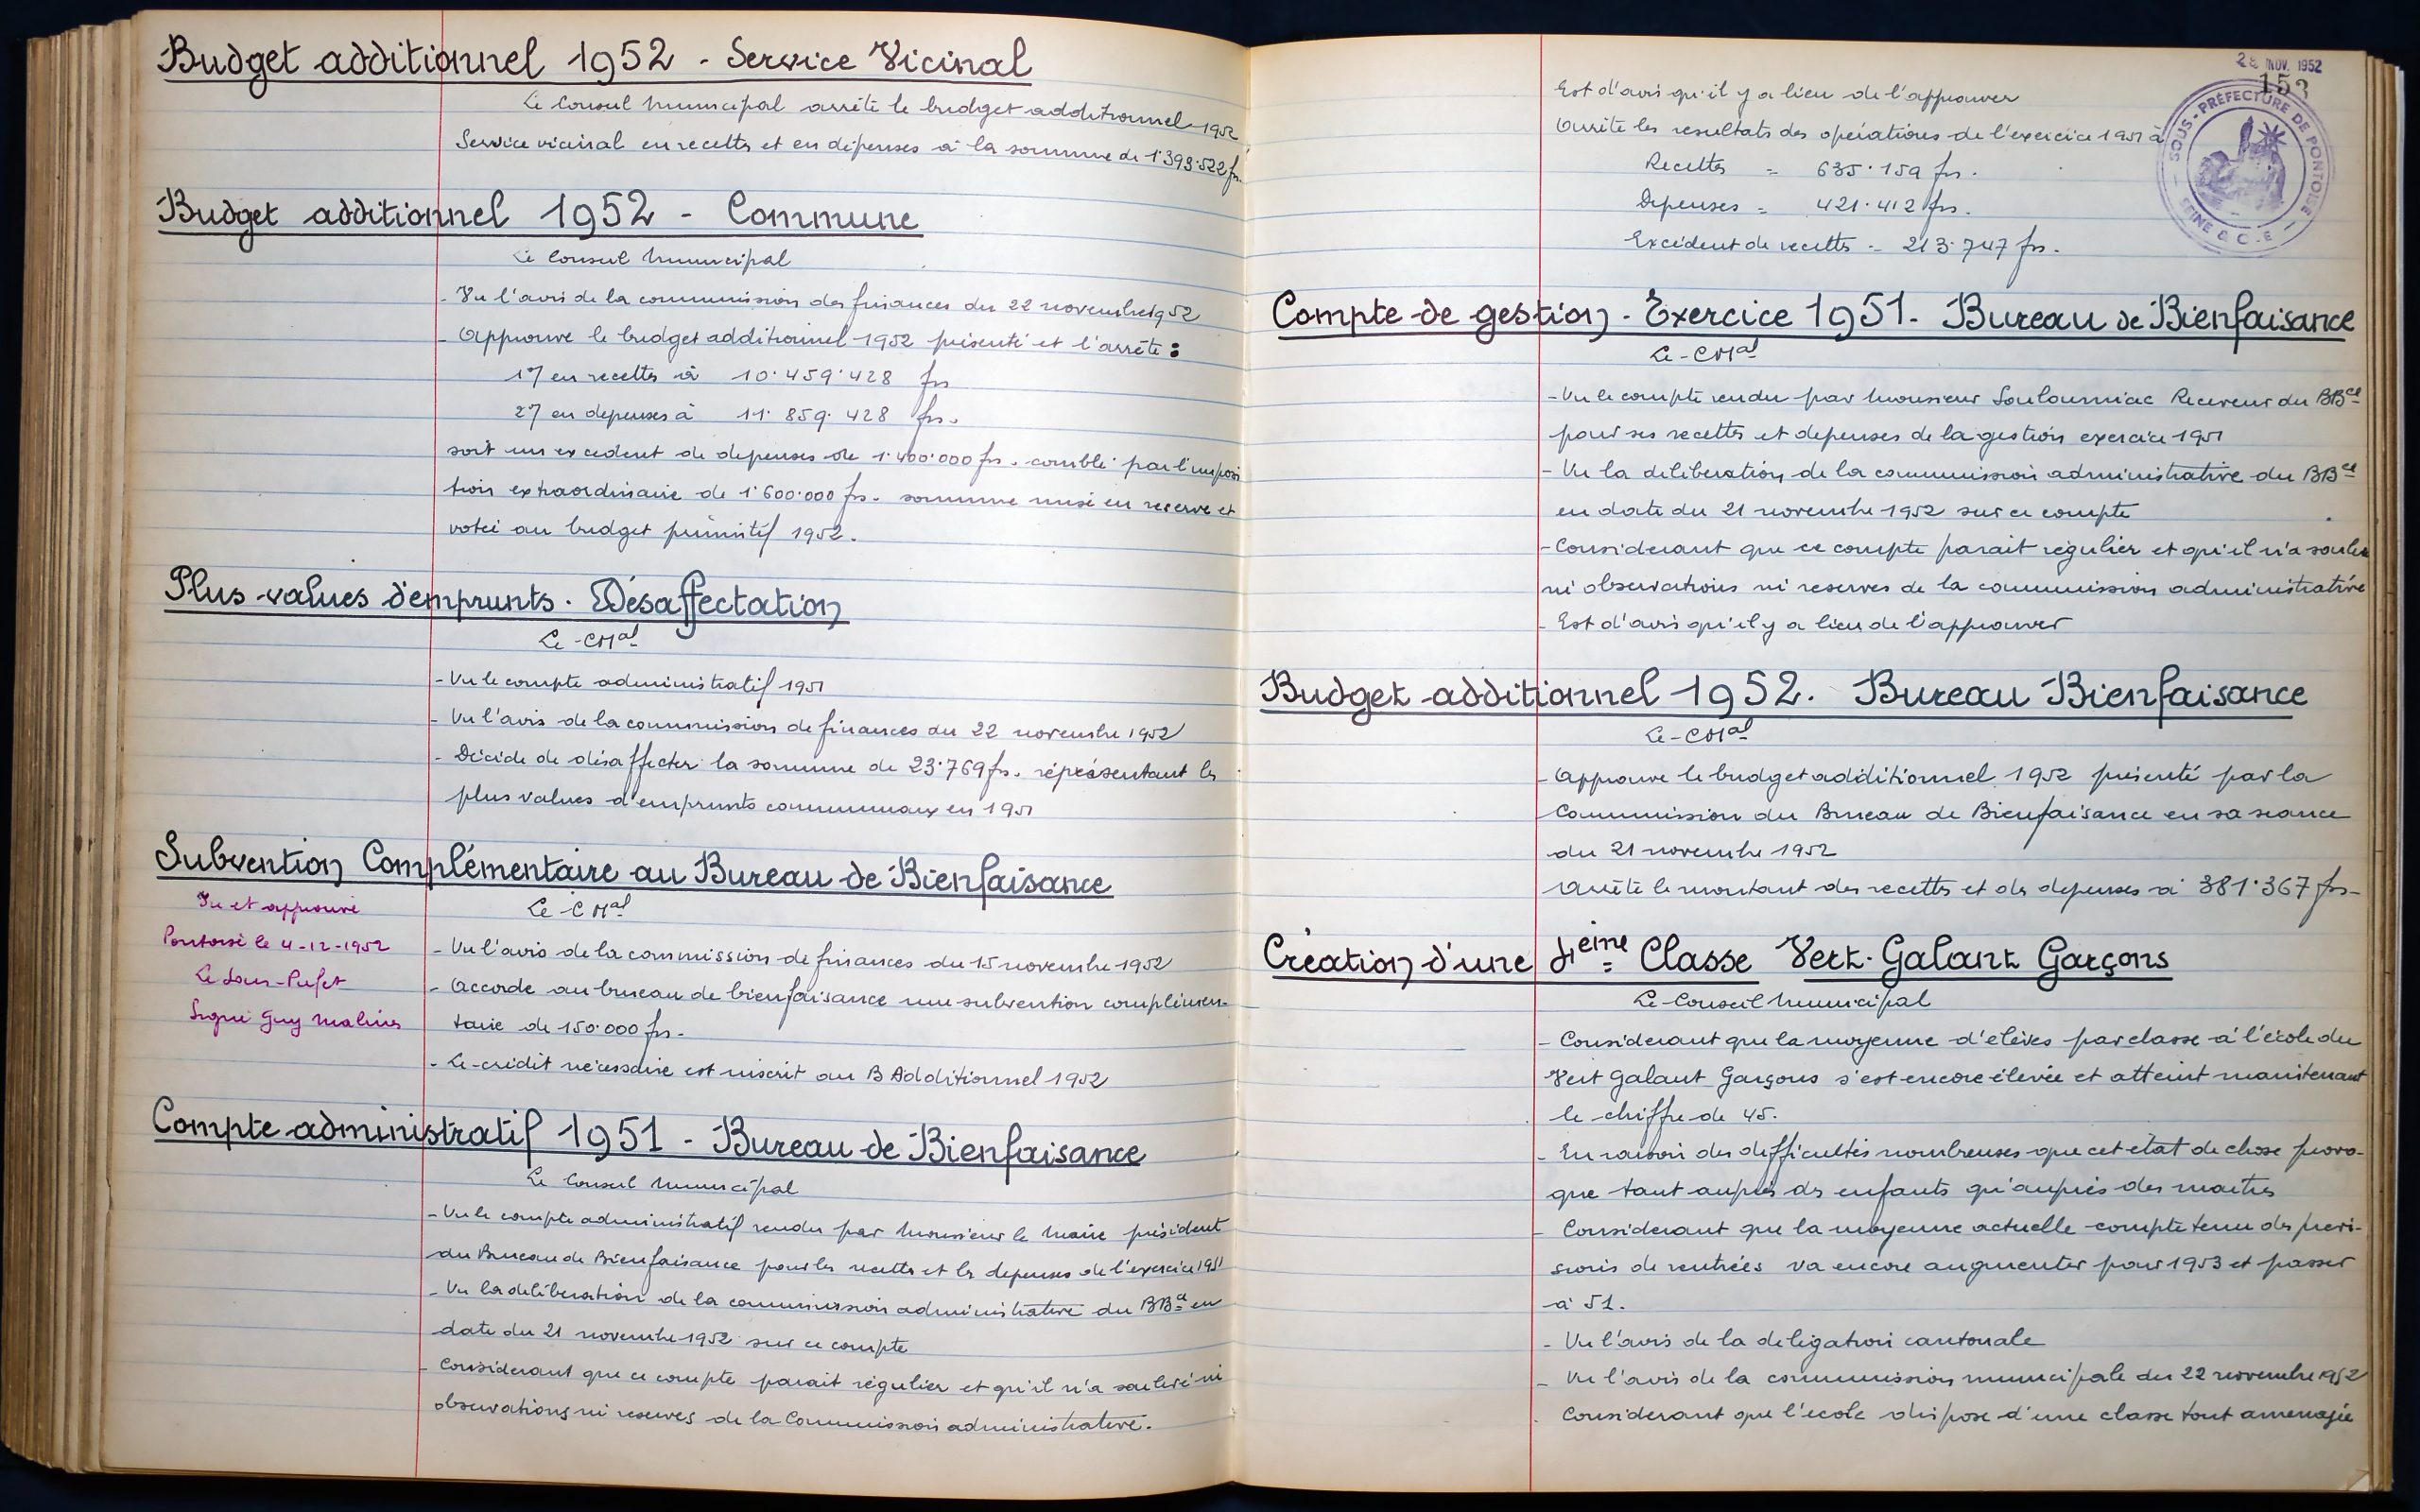 Budget additionnel 1952 - Service Vicinal
Le Conseil municipal arrête le budget additionnel 1952
Service vicinal en recettes et en dépenses à la somme de 1.393.522 frs.
Budget additionnel 1952 - Commune
Le Conseil Municipal
- Vu l'avis de la commission des finances du 22 novembre 1952
- Approuve le budget additionnel 1952 présenté et l'arrête :
1°/ en recettes à 10.459.428 frs
2°/ en depenses à 11.859.428 frs.
soit un excedent de depenses de 1.400.000 frs. comblé par l'imposi
tion extraordinaire de 1.600.000 frs. somme mise en reserve et
votée au budget primitif 1952.
Plus-values d'emprunts. Désaffectation
Le CMal
- Vu le compte administratif 1951
- Vu l'avis de la commission de finances du 22 novembre 1952
- Décide de désaffecter la somme de 23.769 frs. réprésentant les
plus values d'emprunts communaux en 1951
Subvention Complémentaire au Bureau de Bienfaisance
Le CMal
Vu et approuvé
Pontoise le 4-12-1952
Le Sous-Préfet
Signé Guy
- Vu l'avis de la commission de finances du 15 novembre 1952
- Accorde au bureau de bienfaisance une subvention complémen-
taire de 150.000 frs.
- Le crédit nécessaire est inscrit au B Additionnel 1952
Compte administratif 1951 - Bureau de Bienfaisance
Le Conseil Municipal
- Vu le compte administratif rendu par Monsieur le Maire président
du Bureau de Bienfaisance pour les recettes et les depenses de l'exercice 1951
- Vu la délibération de la commission administrative du BBce en
date du 21 novembre 1952 sur ce compte
- Considerant que ce compte parait régulier et qu'il n'a soulevé ni
observations ni reserves de la Commission administrative.
28 NOV. 1952
153
SOUS-PRÉFECTURE DE PONTOISE
SEINE & O-E
Est d'avis qu'il y a lieu de l'approuver
Arrête les resultats des opérations de l'exercice 1951 à
Recettes = 635.159 frs.
Depenses = 421.412 frs.
Excédent de recettes = 213.747 frs.
Compte de gestion. Exercice 1951. Bureau de Bienfaisance
Le CMal
- Vu le compte rendu par Monsieur Souloumiac Receveur du BBce
pour ses recettes et depenses de la gestion exercice 1951
- Vu la deliberation de la commission administrative du BBce
en date du 21 novembre 1952 sur ce compte
- Considerant que ce compte parait régulier et qu'il n'a soulevé
ni observations ni reserves de la commission administrative
- Est d'avis qu'il y a lieu de l'approuver
Budget additionnel 1952. Bureau Bienfaisance
Le CMal
- Approuve le budget additionnel 1952 présenté par la
Commission du Bureau de Bienfaisance en sa seance
du 21 novembre 1952
Arrête le montant des recettes et des depenses à 381.367 frs-
Création d'une 4ème Classe Vert-Galant Garçons
Le Conseil Municipal
- Considerant que la moyenne d'élèves par classe à l'école du
Vert Galant Garçons s'est encore élevée et atteint maintenant
le chiffre de 45.
- En raison des difficultés nombreuses que cet etat de chose provo-
que tant auprès des enfants qu'auprès des maîtres
- Considerant que la moyenne actuelle compte tenu des previ-
sions de rentrées va encore augmenter pour 1953 et passer
à 51.
- Vu l'avis de la délégation cantonale
- Vu l'avis de la commission municipale du 22 novembre 1952
Considerant que l'école dispose d'une classe tout amenagée